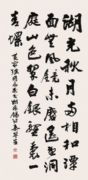 湖光秋月兩相和潭
面無風鏡未磨遙望洞
庭山色翠白銀盤裏一
青螺